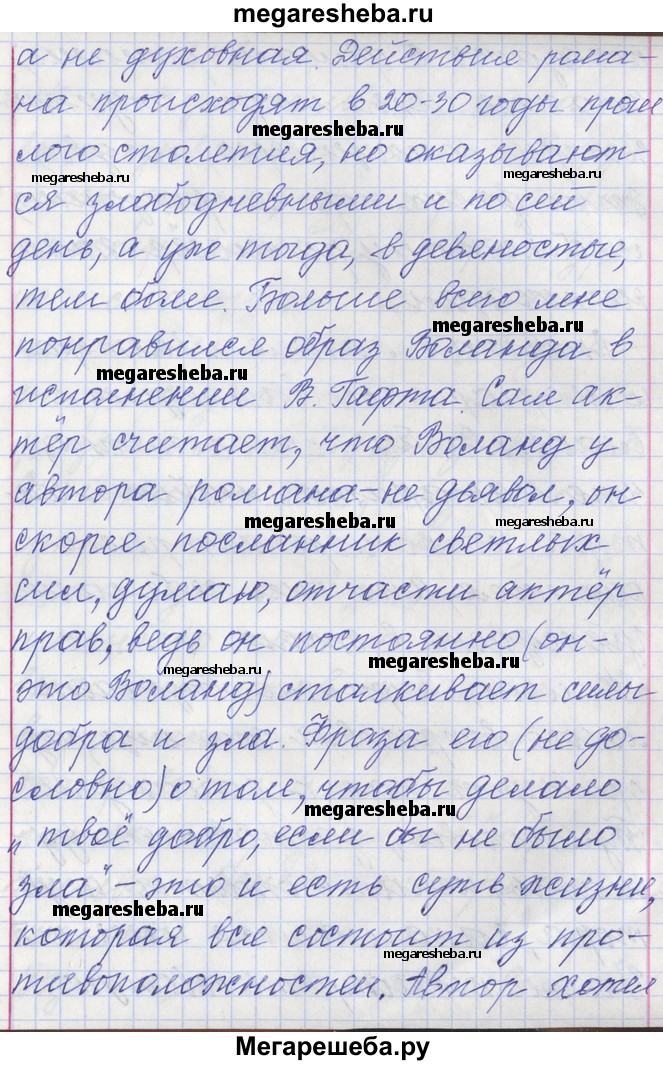 megaresheba.ru
а не духовная. Действие рома-
на происходят в 20-30 годы прош
megaresheba.ru
лого столетия, но оказывают-
megaresheba.ru
ся злободневными и по сей
день, а уже тогда, в девяностые,
тем более. Больше всего мне
megaresheba.ru
понравился образ Воланда в
megaresheba.ru
исполнении В. Гафта. Сам ак-
тёр считает, что Воланд у
автора романа - не дьявол, он
megaresheba.ru
megaresheba.ru
скорее посланник светлых
сил, думаю, отчасти актёр
прав, ведь он постоянно (он-
megaresheba.ru
megaresheba.ru
это Воланд) сталкивает силы
добра и зла. Фраза его (не до-
словно) о том, чтобы делало
megaresheba.ru
"твоё добро, если бы не было
зла" - это и есть суть жизни,
megaresheba.ru
которая вся состоит из про-
megaresheba.ru
тивоположностей. Автор хотел
Мегарешеба.ру